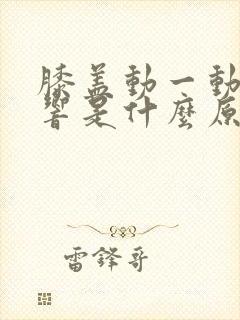 膝蓋動一動
響是什麼原
雷鋒哥